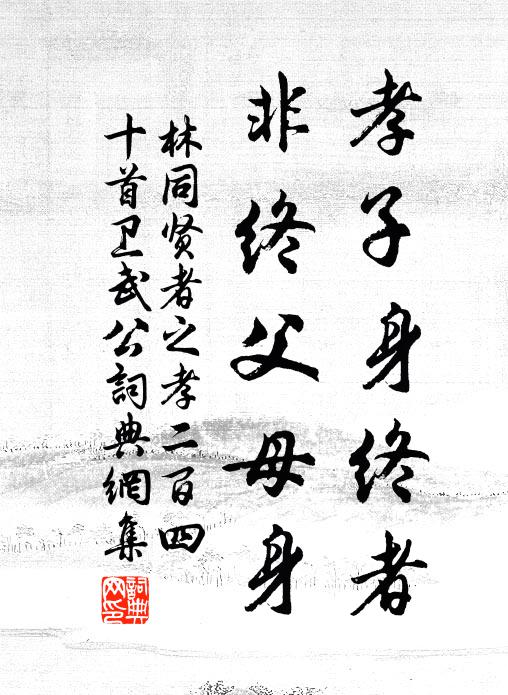 孝子身终者
非终父母身
林同贤者之孝二百四
十首卫武公詞典網集